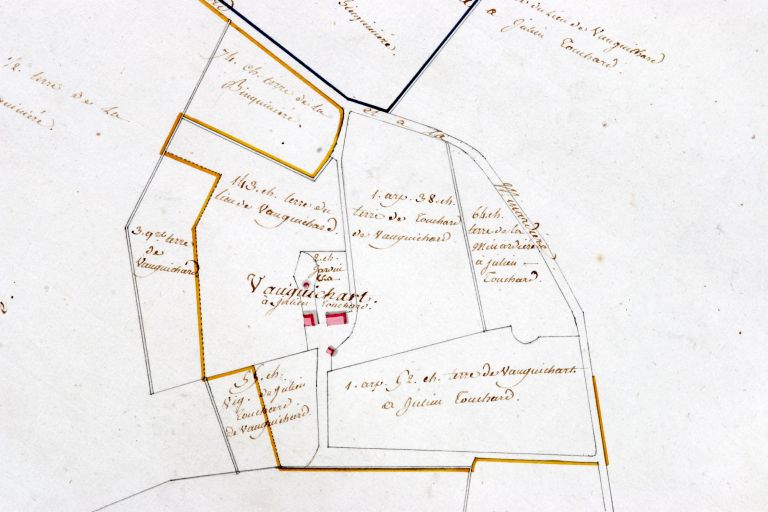 du Lieu de Vauguichard
a Julien Touchard.
½ terre de la
74. ch. terre de la
Binguiniere.
et a la
Minardiere
143. ch. terre du
lieu de Vauguichard.
1. arp. 38. ch.
terre de Touchard
de Vauguichard
64 ch.
terre de la
Minardiere
a Julien
Touchard.
3. qrs terre
de
Vauguichard
2. ch.
Jardin
Vauguichart
a Julien Touchard.
ch.
Vig. de Julien
Touchard
de Vauguichard
1. arp. 92. ch. terre de Vauguichart
a Julien Touchard.